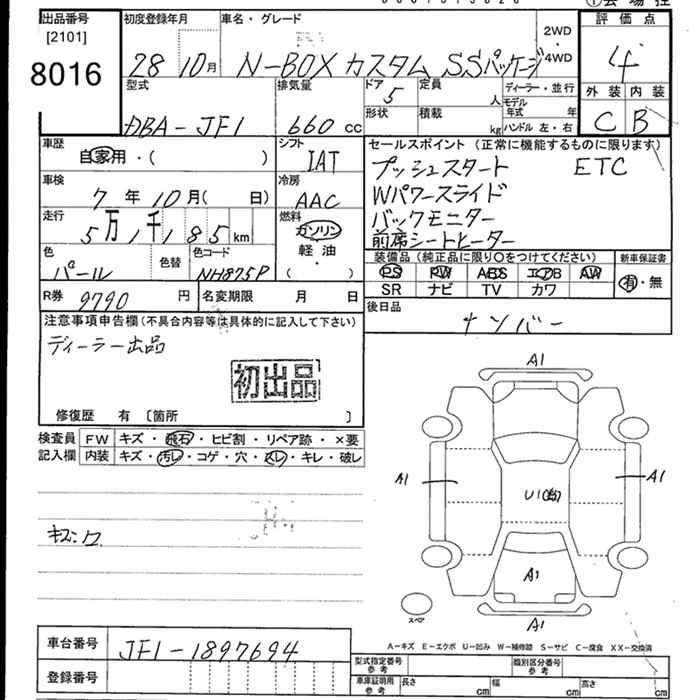 出品番号 初度登録年月 車名・グレード ①会場控
[2101] 2WD・4WD 評価点
8016 28 10月 N-BOX カスタム SSパッケージ 4
型式 排気量 ドア 定員 ディーラー・並行 外装 内装
DBA-JF1 660 cc 5 人 モデル年式 年 C B
形状 積載 kg ハンドル 左・右
車歴 シフト セールスポイント (正常に機能するものに限ります)
自家用・( ) IAT プッシュスタート ETC
車検 冷房 Wパワースライド
7年 10月( 日) AAC バックモニター
走行 燃料 前席シートヒーター
5万 1千 1 8 5 km ガソリン
軽・油
( )
色 色替 色コード 装備品 (純正品に限り○をつけてください) 新車保証書
パール NH875P PS PW ABS エアB AW 有・無
SR ナビ TV カワ
R券 9790 円 名変期限 月 日 後日品
ナンバー
注意事項申告欄 (不具合内容等は具体的に記入して下さい)
ディーラー出品
初出品
修復歴 有 〔箇所 〕
検査員 FW キズ・飛石・ヒビ割・リペア跡・×要
記入欄 内装 キズ・汚レ・コゲ・穴・スレ・キレ・破レ
A1
A1
A1
A1
A1
スペア
A-キズ E-エクボ U-凹み W-補修跡 S-サビ C-腐食 XX-交換済
車台番号 JF1-1897694
登録番号
型式指定番号 参考 類別区分番号 参考
車庫証明用 参考 長さ cm 幅 cm 高さ cm